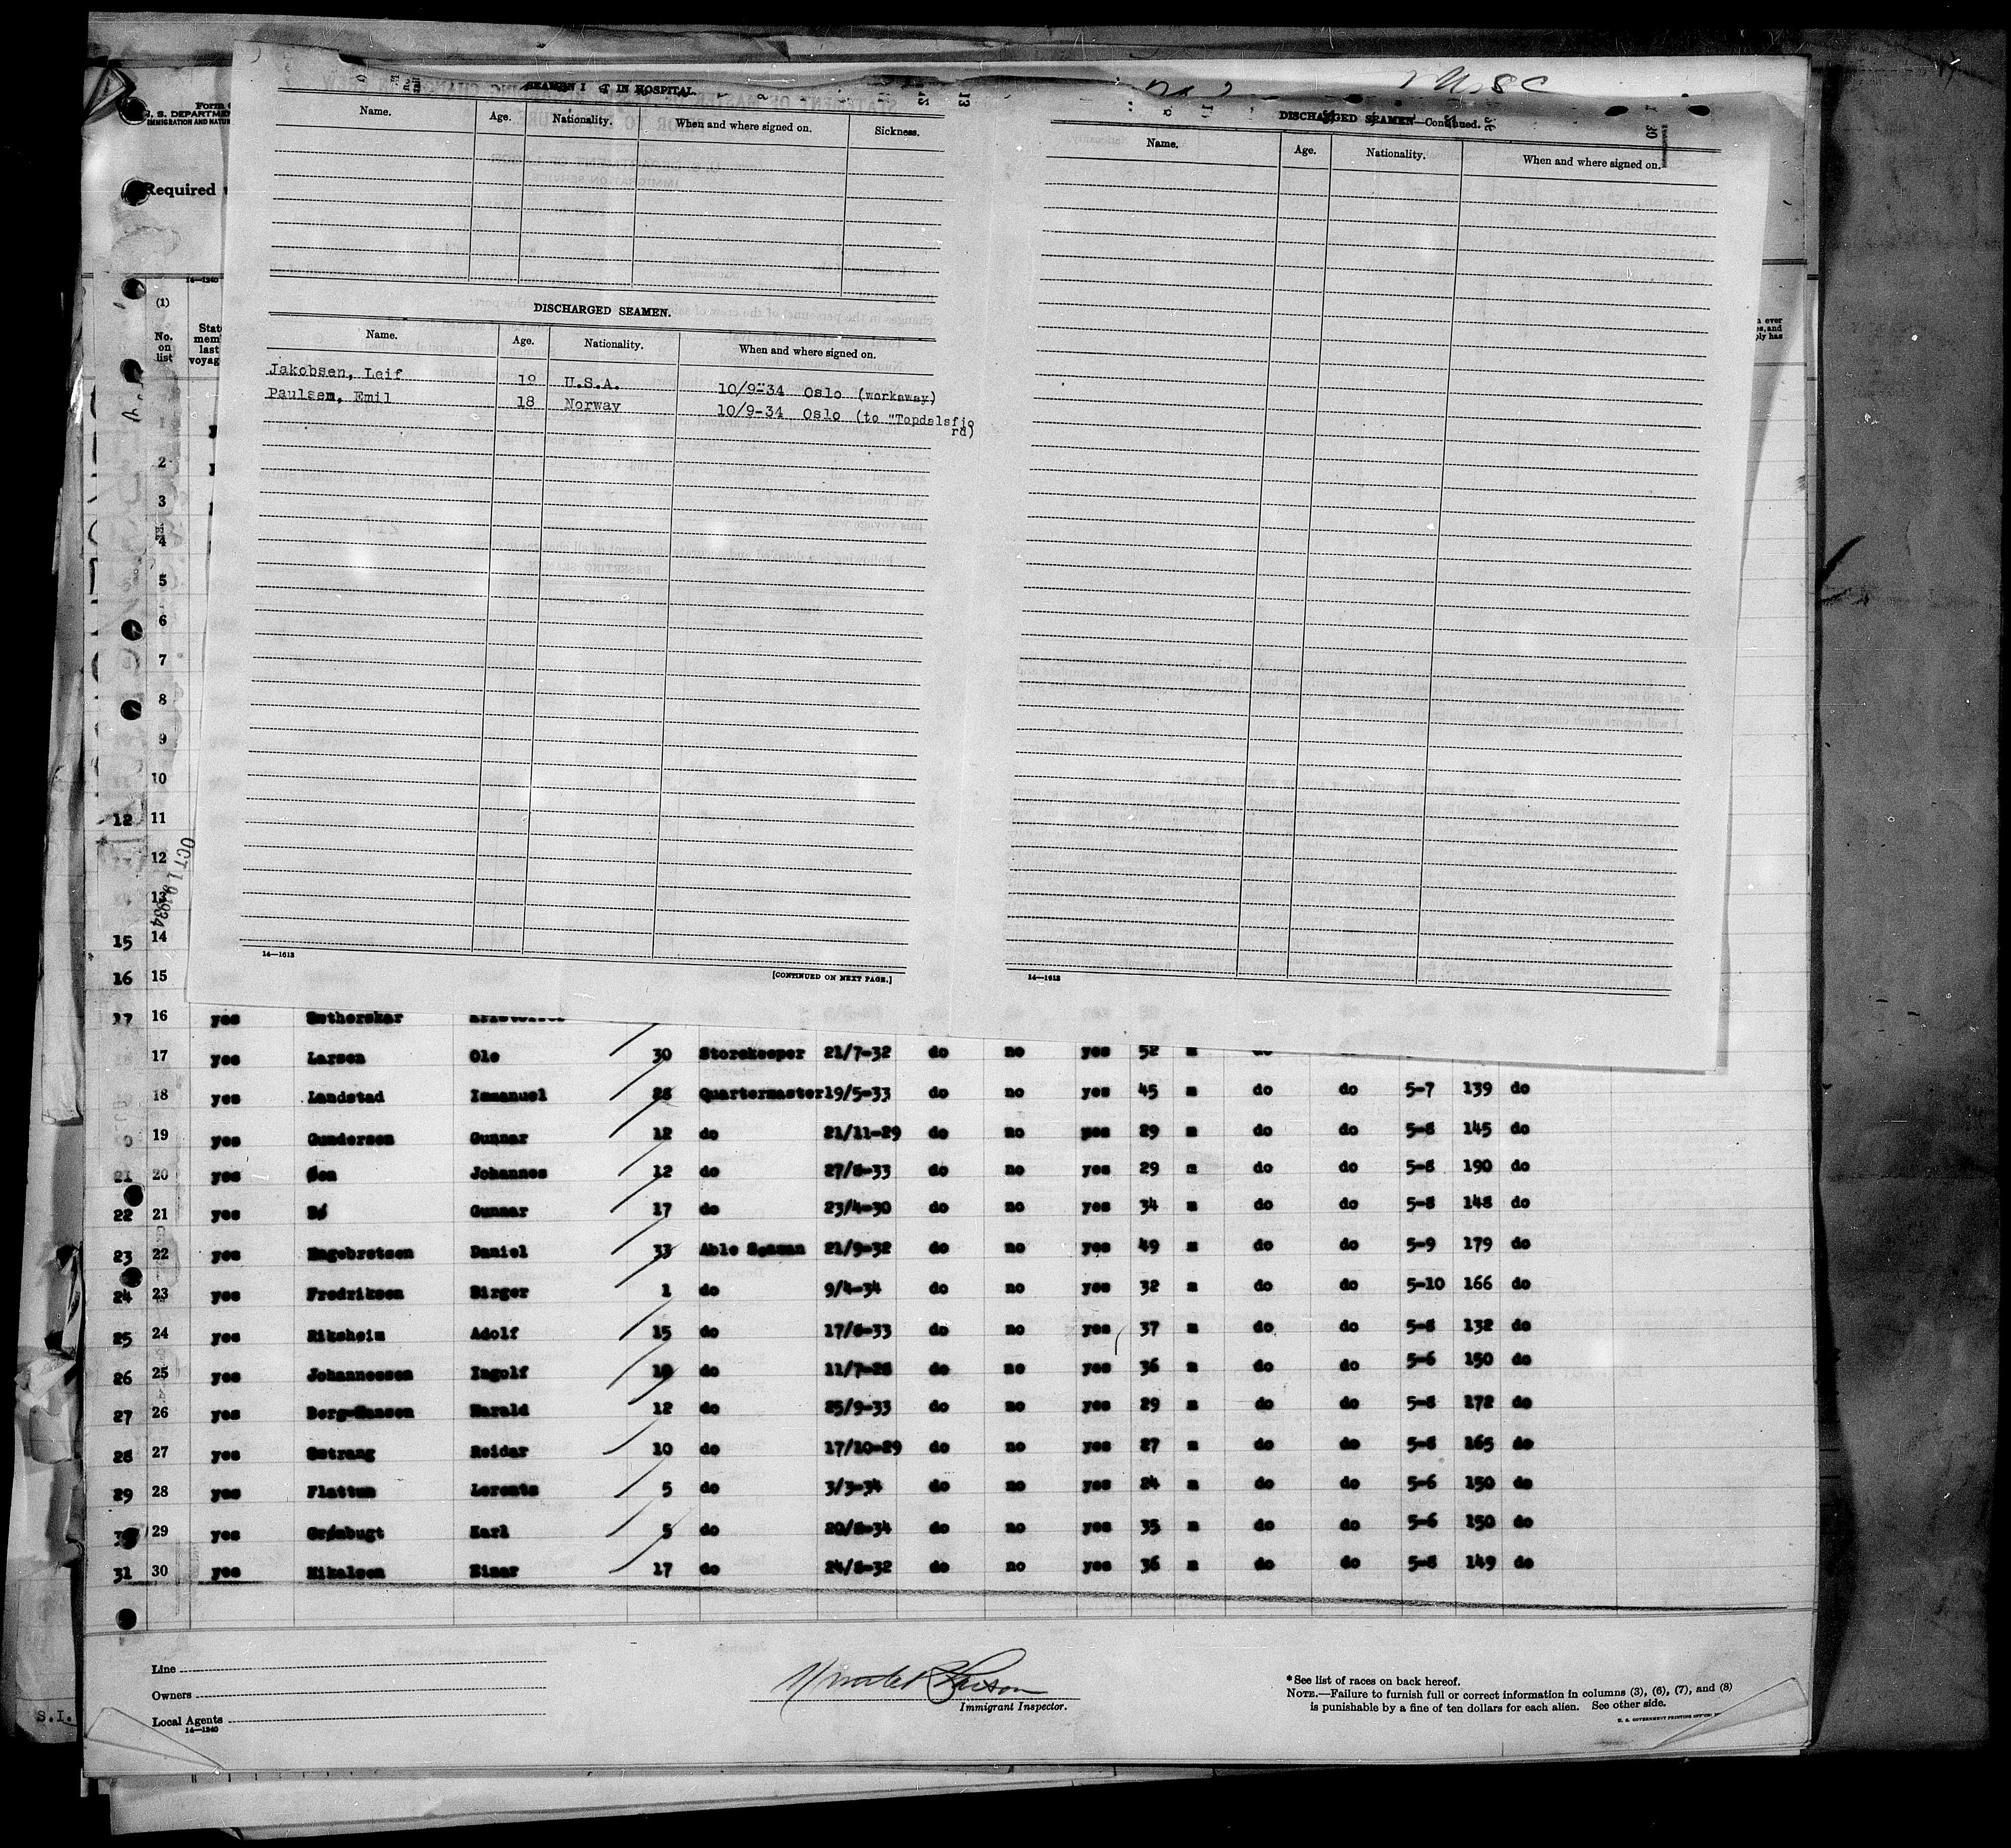 Form
U. S. DEPARTMENT
IMMIGRATION AND NATUR
Required
14—1240
(1)
No. on list
State mem last voyag
SEAMEN IN HOSPITAL.
Name. Age. Nationality. When and where signed on. Sickness.
DISCHARGED SEAMEN.
Name. Age. Nationality. When and where signed on.
Jakobsen, Leif 18 U.S.A. 10/9-34 Oslo (workaway)
Paulsen, Emil 18 Norway 10/9-34 Oslo (to "Topdalsfjo
rd)
14—1613
[CONTINUED ON NEXT PAGE.]
DISCHARGED SEAMEN—Continued.
Name. Age. Nationality. When and where signed on.
14—1613
1
2
3
4
5
6
7
8
9
10
12 11
12
OCT 1934
13
15 14
16 15
17 16 yes Sætherskar
17 yes Larsen Ole 30 Storekeeper 21/7-32 do no yes 52 m do
18 yes Landstad Immanuel 28 Quartermaster 19/5-33 do no yes 45 m do do 5-7 139 do
19 yes Gundersen Gunnar 12 do 21/11-29 do no yes 29 m do do 5-8 145 do
21 20 yes Øen Johannes 12 do 27/8-33 do no yes 29 m do do 5-8 190 do
22 21 yes Bø Gunnar 17 do 23/4-30 do no yes 34 m do do 5-8 148 do
23 22 yes Engebretsen Daniel 33 Able Seaman 21/9-32 do no yes 49 m do do 5-9 179 do
24 23 yes Fredriksen Birger 1 do 9/4-34 do no yes 32 m do do 5-10 166 do
25 24 yes Riksheim Adolf 15 do 17/6-33 do no yes 37 m do do 5-8 132 do
26 25 yes Johannessen Ingolf do 11/7-28 do no yes 36 m do do 5-6 150 do
27 26 yes Berg-Hansen Harald 12 do 25/9-33 do no yes 29 m do do 5-8 172 do
28 27 yes Sætrang Reidar 10 do 17/10-29 do no yes 27 m do do 5-8 165 do
29 28 yes Flattum Lorents 5 do 3/3-34 do no yes 24 m do do 5-6 150 do
29 yes Grønbugt Karl 5 do 20/8-34 do no yes 35 m do do 5-6 150 do
31 30 yes Mikalsen Einar 17 do 24/8-32 do no yes 36 m do do 5-8 149 do
Line
Owners
Local Agents
14—1240
Immigrant Inspector.
* See list of races on back hereof.
NOTE.—Failure to furnish full or correct information in columns (3), (6), (7), and (8)
is punishable by a fine of ten dollars for each alien. See other side.
S.I.